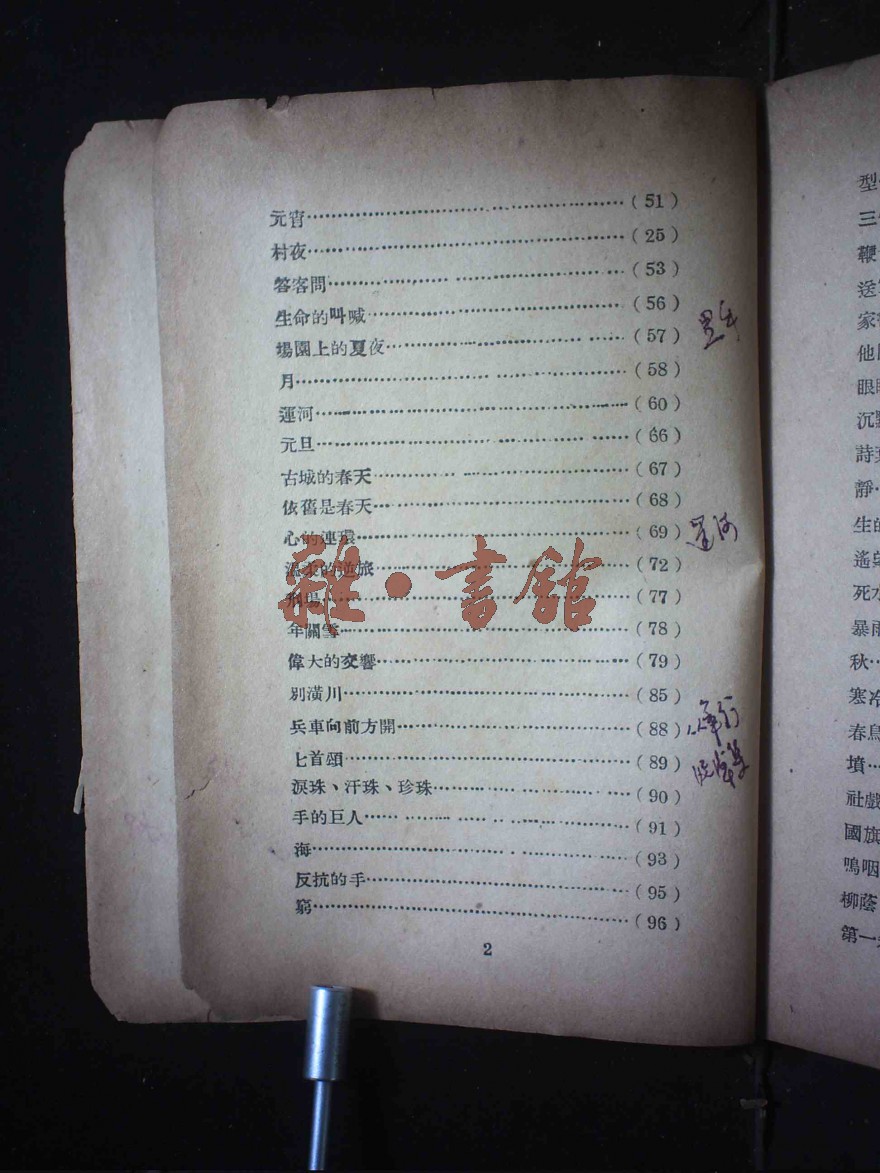 元宵………………(51)
村夜………………(25)
答客問………………(53)
生命的叫喊………………(56)
場園上的夏夜………………(57)
月………………(58)
運河………………(60)
元旦………………(66)
古城的春天………………(67)
依舊是春天………………(68)
心的連環………………(69)
溫柔的逆旅………………(72)
刑場………………(77)
年關雪………………(78)
偉大的交響………………(79)
別潢川………………(85)
兵車向前方開………………(88)
匕首頌………………(89)
淚珠、汗珠、珍珠………………(90)
手的巨人………………(91)
海………………(93)
反抗的手………………(95)
窮………………(96)
2
雜·書館
運河
型
三
鞭
送
家
他
眼
沉
詩
靜
生的
遙
死水
暴雨
秋
寒冷
春鳥
墳
社戲
國旗
鳴咽
柳蔭
第一